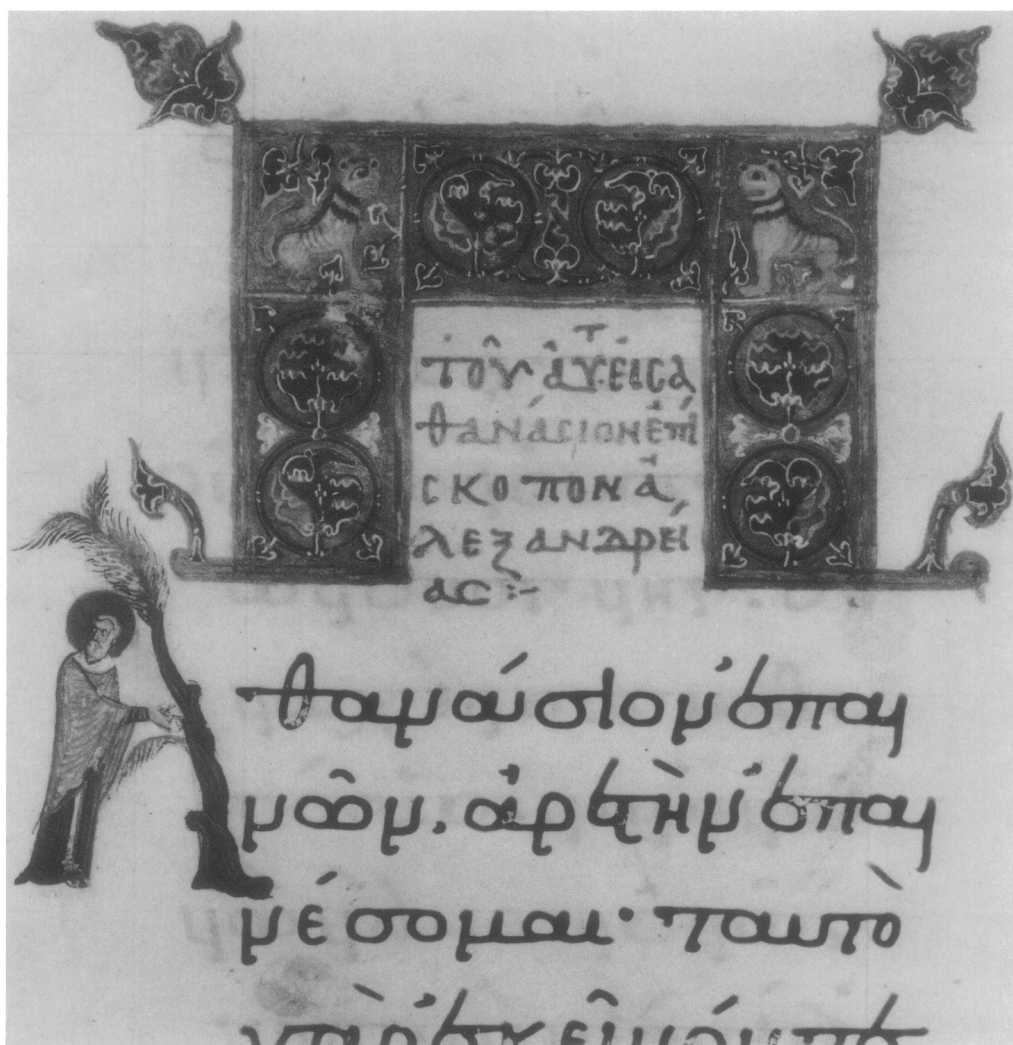 τοῦ ἀυτ εἰς ἀ
θανάσιον ἐπί
σκοπον ἀ
λεξανδρεί
ας :-
Αθανάσιον ἐπαι
νῶν, ἀρετὴν ἐπαι
νέσομαι· ταυτὸ
γὰρ ἐκεῖνόν τε